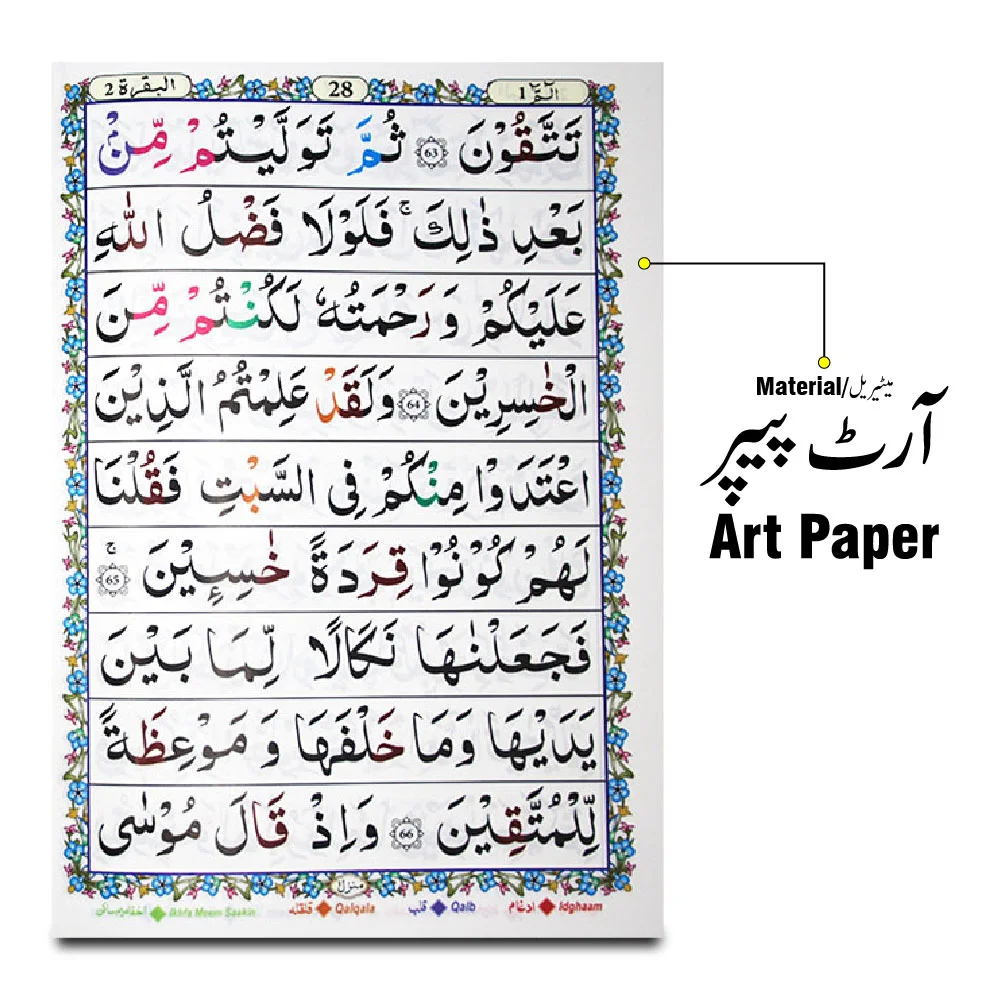 الٓمّٓ 1 28 البقرة 2
تَتَّقُوْنَ 63 ثُمَّ تَوَلَّيْتُمْ مِّنْۢ
بَعْدِ ذٰلِكَ ۚ فَلَوْلَا فَضْلُ اللّٰهِ
عَلَيْكُمْ وَرَحْمَتُهٗ لَكُنْتُمْ مِّنَ
الْخٰسِرِيْنَ 64 وَلَقَدْ عَلِمْتُمُ الَّذِيْنَ
اعْتَدَوْا مِنْكُمْ فِى السَّبْتِ فَقُلْنَا
لَهُمْ كُوْنُوْا قِرَدَةً خٰسِـِٕيْنَ ۚ 65
فَجَعَلْنٰهَا نَكَالًا لِّمَا بَيْنَ
يَدَيْهَا وَمَا خَلْفَهَا وَ مَوْعِظَةً
لِّلْمُتَّقِيْنَ 66 وَاِذْ قَالَ مُوْسٰى
منزل
Idghaam ادغام Qalb قلب Qalqala قلقله Ikhfa Meem Saakin
Material/میٹیریل
آرٹ پیپر
Art Paper